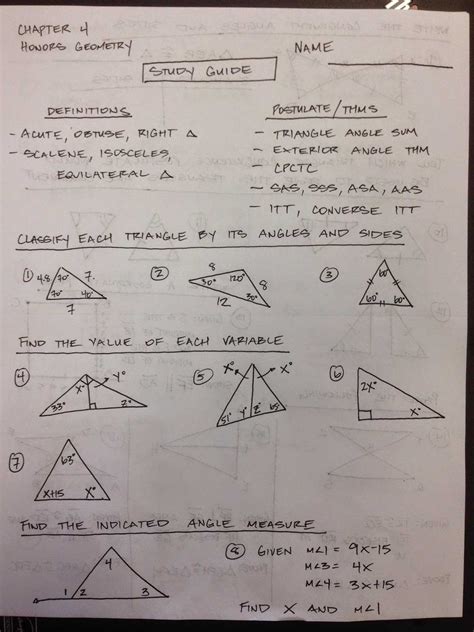 CHAPTER 4
HONORS GEOMETRY
NAME
STUDY GUIDE
DEFINITIONS
- ACUTE, OBTUSE, RIGHT Δ
- SCALENE, ISOSCELES,
EQUILATERAL Δ
POSTULATE/THMS
- TRIANGLE ANGLE SUM
- EXTERIOR ANGLE THM
- CPCTC
- SAS, SSS, ASA, AAS
- ITT, CONVERSE ITT
CLASSIFY EACH TRIANGLE BY ITS ANGLES AND SIDES
① 4.8 70° 7.
70° 40°
7
② 8
30° 120° 8
30°
12
③ 60°
60° 60°
FIND THE VALUE OF EACH VARIABLE
④ X° Y°
33° Z°
⑤ X° X°
51° Y° Z° 65°
⑥ 2X°
X°
⑦ 63°
X+15 X°
FIND THE INDICATED ANGLE MEASURE
4
1 2 3
⑧ GIVEN M∠1 = 9X-15
M∠3 = 4X
M∠4 = 3X+15
FIND X AND M∠1